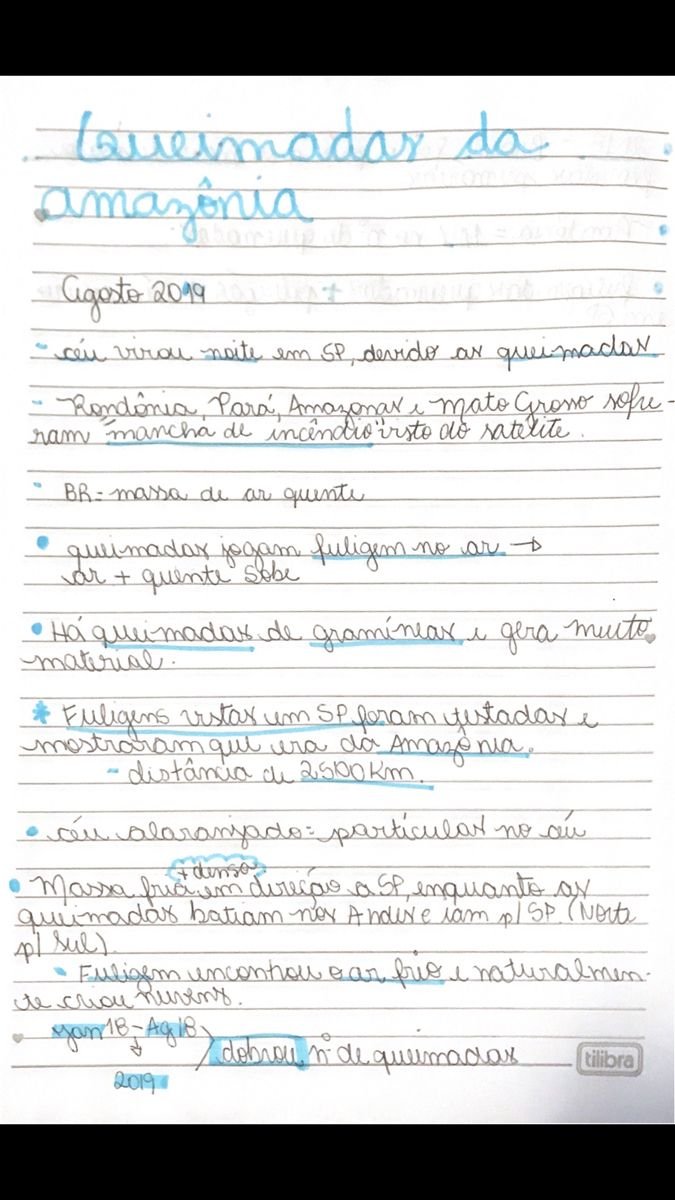 Queimadas da
amazônia
Agosto 2019
- céu virou noite em SP, devido as queimadas
- Rondônia, Pará, Amazonas e Mato Grosso sofre-
ram "mancha de incêndio" visto do satélite.
- BR = massa de ar quente
• queimadas jogam fuligem no ar →
ar + quente sobe
• Há queimadas de gramíneas e gera muito
material.
* Fuligens vistas em SP foram testadas e
mostraram que era da Amazônia.
- distância de 2500Km.
• céu alaranjado = partículas no céu
+ densa
• Massa fria em direção a SP, enquanto as
queimadas batiam nos Andes e iam p/ SP. (Norte
p/ Sul)
• Fuligem encontrou o ar frio e naturalmen-
te criou nuvens.
Jan 18 - Ag 18
↓
2019
dobrou nº de queimadas
tilibra